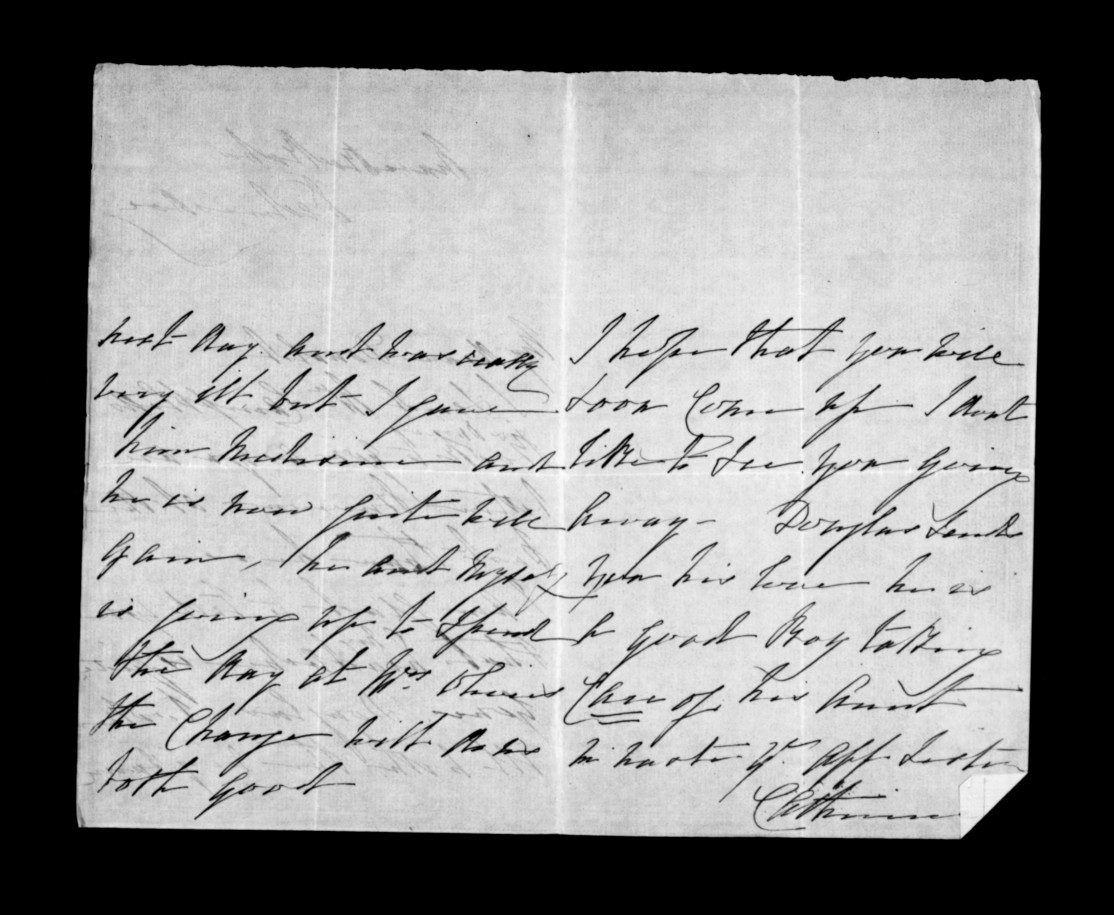 next day and was really
very ill but I gave
him Medisine and
he is now quite well
gain, he and Myself
is going up to Spend
the day at Mrs
the Change will do us
both good
I hope that you will
soon Come up I dont
like to See you going
away - Douglas Sends
you his love he is
a good Boy taking
Care of his Aunt
in haste yr. aff Sister
Catherine